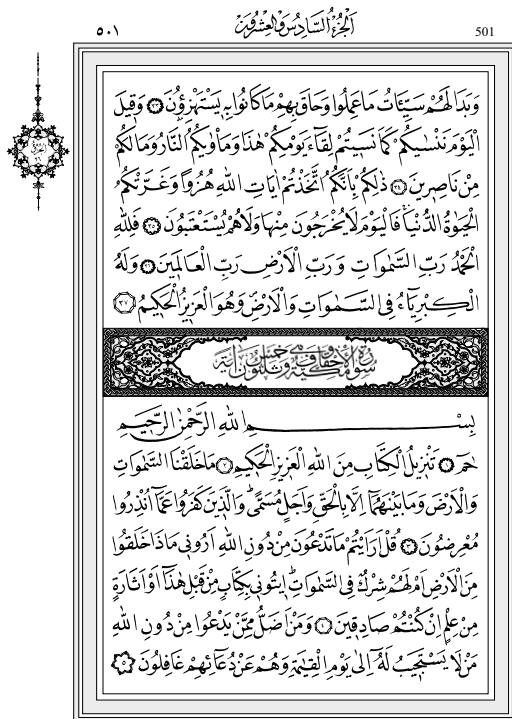 501 الجزء السادس والعشرون ٥٠١
وَبَدَا لَهُمْ سَيِّئَاتُ مَا عَمِلُوا وَحَاقَ بِهِمْ مَا كَانُوا بِهِ يَسْتَهْزِؤُنَ ﴿٣٣﴾ وَقِيلَ
الْيَوْمَ نَنْسٰيكُمْ كَمَا نَسِيتُمْ لِقَاءَ يَوْمِكُمْ هٰذَا وَمَأْوٰيكُمُ النَّارُ وَمَا لَكُمْ
مِنْ نَاصِرِينَ ﴿٣٤﴾ ذٰلِكُمْ بِاَنَّكُمُ اتَّخَذْتُمْ اٰيَاتِ اللّٰهِ هُزُوًا وَغَرَّتْكُمُ
الْحَيٰوةُ الدُّنْيَا فَالْيَوْمَ لَا يُخْرَجُونَ مِنْهَا وَلَا هُمْ يُسْتَعْتَبُونَ ﴿٣٥﴾ فَلِلّٰهِ
الْحَمْدُ رَبِّ السَّمٰوَاتِ وَرَبِّ الْاَرْضِ رَبِّ الْعَالَمِينَ ﴿٣٦﴾ وَلَهُ
الْكِبْرِيَاءُ فِي السَّمٰوَاتِ وَالْاَرْضِ وَهُوَ الْعَزِيزُ الْحَكِيمُ ﴿٣٧﴾
سورة الاحقاف مكية وهي خمس وثلثون اية
بِسْمِ اللّٰهِ الرَّحْمٰنِ الرَّحِيمِ
حٰمٓ ﴿١﴾ تَنْزِيلُ الْكِتَابِ مِنَ اللّٰهِ الْعَزِيزِ الْحَكِيمِ ﴿٢﴾ مَا خَلَقْنَا السَّمٰوَاتِ
وَالْاَرْضَ وَمَا بَيْنَهُمَا اِلَّا بِالْحَقِّ وَاَجَلٍ مُسَمًّى وَالَّذِينَ كَفَرُوا عَمَّا اُنْذِرُوا
مُعْرِضُونَ ﴿٣﴾ قُلْ اَرَاَيْتُمْ مَا تَدْعُونَ مِنْ دُونِ اللّٰهِ اَرُونِي مَاذَا خَلَقُوا
مِنَ الْاَرْضِ اَمْ لَهُمْ شِرْكٌ فِي السَّمٰوَاتِ اِيتُونِي بِكِتَابٍ مِنْ قَبْلِ هٰذَا اَوْ اَثَارَةٍ
مِنْ عِلْمٍ اِنْ كُنْتُمْ صَادِقِينَ ﴿٤﴾ وَمَنْ اَضَلُّ مِمَّنْ يَدْعُوا مِنْ دُونِ اللّٰهِ
مَنْ لَا يَسْتَجِيبُ لَهُ اِلٰى يَوْمِ الْقِيٰمَةِ وَهُمْ عَنْ دُعَائِهِمْ غَافِلُونَ ﴿٥﴾